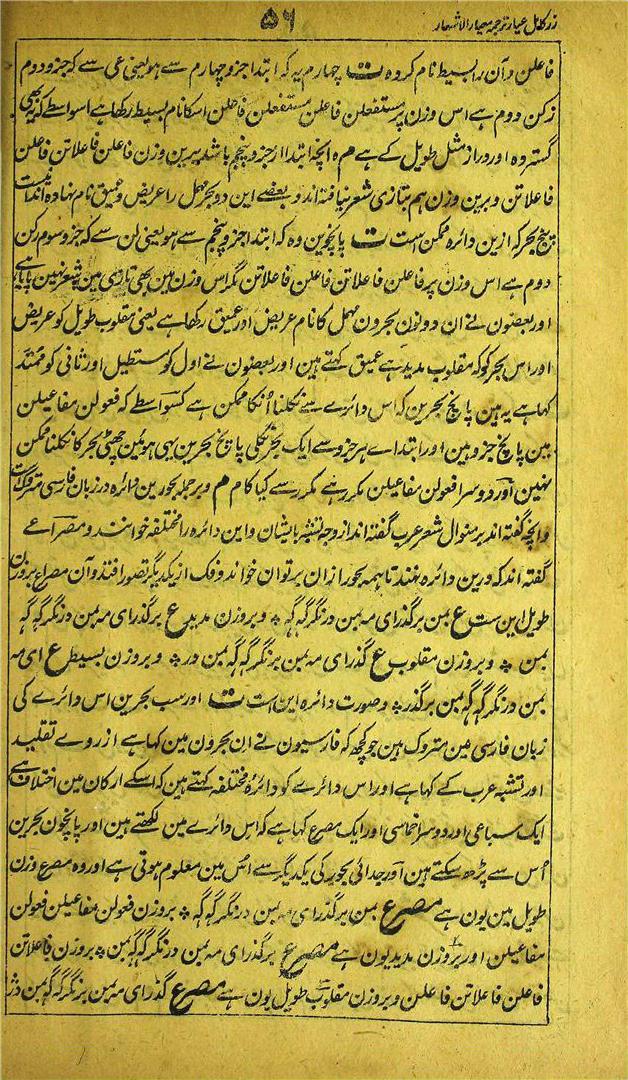 زر کامل عیار ترجمہ معیار الاشعار
۵۶
فاعلن و آن را بسیط نام کردہ ت چہارم یہ کہ ابتدا جزو چہارم سے ہو یعنی عی سے کہ جزو دوم
رکن دوم ہے اس وزن پر مستفعلن فاعلن مستفعلن فاعلن اسکا نام بسیط رکھا ہے اسواسطے کہ یہ بھی
گستردہ اور دراز مثل طویل کے ہے م ہ انچہ ابتدا از جزو پنجم باشد برین وزن فاعلن فاعلاتن فاعلن
فاعلاتن و برین وزن ہم بتازی شعر نیافتہ اند و بعضے این دو بحر مہمل را عریض و عمیق نام نہادہ اند اینست
پنج بحر کہ ازین دائرہ ممکن است ت پانچوین وہ کہ ابتدا جزو پنجم سے ہو یعنی لن سے کہ جزو سوم رکن
دوم ہے اس وزن پر فاعلن فاعلاتن فاعلن فاعلاتن مگر اس وزن مین بھی تازی مین شعر نہین پایا ہے
اور بعضون نے ان دونون بحرون مہمل کا نام عریض اور عمیق رکھا ہے یعنی مقلوب طویل کو عریض
اور اس بحر کو کہ مقلوب مدید ہے عمیق کہتے ہین اور بعضون نے اول کو مستطیل اور ثانی کو ممتد
کہا ہے یہ ہین پانچ بحرین کہ اس دائرے سے نکلنا اُنکا ممکن ہے کسواسطے کہ فعولن مفاعیلن
مین پانچ جزو ہین اور ابتداے ہر جزو سے ایک بحر نکلی پانچ بحرین یہی ہوئین چھٹی بحر کا نکلنا ممکن
نہین اور دوسرا فعولن مفاعیلن مکرر ہے مکرر سے کیا کام م و برجملہ بحور این دائرہ در زبان فارسی متروک است
و انچہ گفتہ اند بر منوال شعر عرب گفتہ اند از وجہ تشبہ بایشان و این دائرہ را مختلفہ خوانند و مصراعے
گفتہ اند کہ درین دائرہ نہند تا ہمہ بحور ازان بر توان خواند و فک از یکدیگر تصور افتد و آن مصراع بر وزن
طویل این ست ع بمن برگذرای مہ بمن درنگر گہ گہ ٭ و بر وزن مدید ع برگذرای مہ بمن درنگر گہ گہ
بمن ٭ و بر وزن مقلوب ع گذرای مہ بمن برنگر گہ گہ بمن در ٭ و بر وزن بسیط ع ای مہ
بمن درنگر گہ گہ بمن برگذر ٭ و صورت دائرہ این است ت اور سب بحرین اس دائرے کی
زبان فارسی مین متروک ہین جو کچھ کہ فارسیون نے ان بحرون مین کہا ہے ازروے تقلید
اور تشبہ عرب کے کہا ہے اور اس دائرے کو دائرہ مختلفہ کہتے ہین کہ اسکے ارکان مین اختلاف ہے
ایک سباعی اور دوسرا خماسی اور ایک مصرع کہا ہے کہ اِس دائرے مین لکھتے ہین اور پانچون بحرین
اُس سے پڑھ سکتے ہین اور جدائی بحور کی یکدیگر سے اُس مین معلوم ہوتی ہے اور وہ مصرع وزن
طویل مین یون ہے مصرع بمن برگذرای مہ بمن درنگر گہ گہ ٭ بر وزن فعولن مفاعیلن فعولن
مفاعیلن اور بر وزن مدید یون ہے مصرع برگذرای مہ بمن درنگر گہ گہ بمن ٭ بر وزن فاعلاتن
فاعلن فاعلاتن فاعلن و بر وزن مقلوب طویل یون ہے مصرع گذرای مہ بمن برنگر گہ گہ بمن در